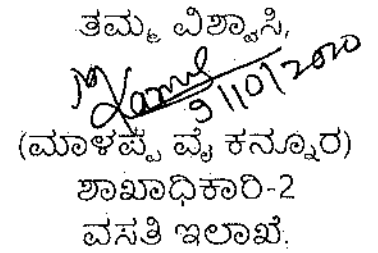 ತಮ್ಮ ವಿಶ್ವಾಸಿ,
9/10/2020
(ಮಾಳಪ್ಪ ವೈ ಕನ್ನೂರ)
ಶಾಖಾಧಿಕಾರಿ-2
ವಸತಿ ಇಲಾಖೆ.